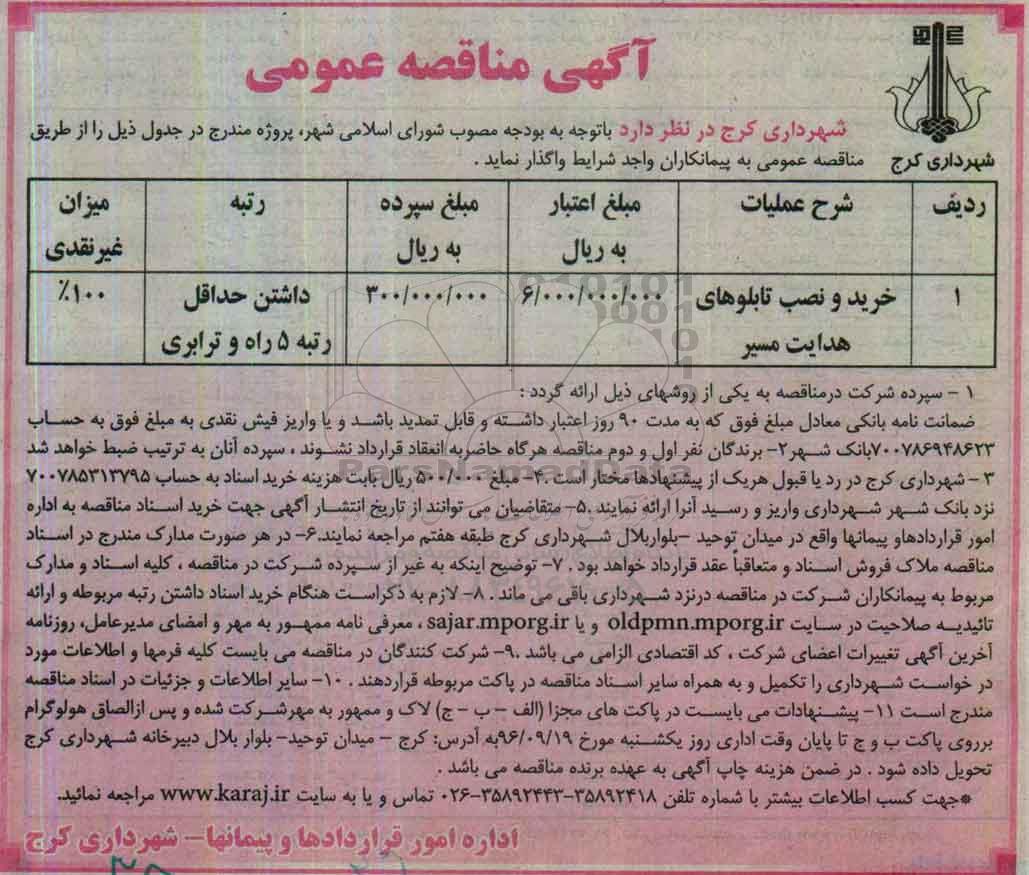 آگهی مناقصه عمومی
شهرداری کرج
شهرداری کرج در نظر دارد باتوجه به بودجه مصوب شورای اسلامی شهر، پروژه مندرج در جدول ذیل را از طریق
مناقصه عمومی به پیمانکاران واجد شرایط واگذار نماید .
ردیف شرح عملیات مبلغ اعتبار به ریال مبلغ سپرده به ریال رتبه میزان غیرنقدی
۱ خرید و نصب تابلوهای هدایت مسیر ۶/۰۰۰/۰۰۰/۰۰۰ ۳۰۰/۰۰۰/۰۰۰ داشتن حداقل رتبه ۵ راه و ترابری ۱۰۰٪
۱ - سپرده شرکت درمناقصه به یکی از روشهای ذیل ارائه گردد :
ضمانت نامه بانکی معادل مبلغ فوق که به مدت ۹۰ روز اعتبار داشته و قابل تمدید باشد و یا واریز فیش نقدی به مبلغ فوق به حساب
۷۰۰۷۸۶۹۴۸۶۲۳بانک شهر۲- برندگان نفر اول و دوم مناقصه هرگاه حاضربه انعقاد قرارداد نشوند ، سپرده آنان به ترتیب ضبط خواهد شد
۳ - شهرداری کرج در رد یا قبول هریک از پیشنهادها مختار است .۴- مبلغ ۵۰۰/۰۰۰ ریال بابت هزینه خرید اسناد به حساب ۷۰۰۷۸۵۳۱۳۷۹۵
نزد بانک شهر شهرداری واریز و رسید آنرا ارائه نمایند .۵- متقاضیان می توانند از تاریخ انتشار آگهی جهت خرید اسناد مناقصه به اداره
امور قراردادهاو پیمانها واقع در میدان توحید -بلواربلال شهرداری کرج طبقه هفتم مراجعه نمایند.۶- در هر صورت مدارک مندرج در اسناد
مناقصه ملاک فروش اسناد و متعاقباً عقد قرارداد خواهد بود . ۷- توضیح اینکه به غیر از سپرده شرکت در مناقصه ، کلیه اسناد و مدارک
مربوط به پیمانکاران شرکت در مناقصه درنزد شهرداری باقی می ماند . ۸- لازم به ذکراست هنگام خرید اسناد داشتن رتبه مربوطه و ارائه
تائیدیه صلاحیت در سایت oldpmn.mporg.ir و یا sajar.mporg.ir ، معرفی نامه ممهور به مهر و امضای مدیرعامل، روزنامه
آخرین آگهی تغییرات اعضای شرکت ، کد اقتصادی الزامی می باشد .۹- شرکت کنندگان در مناقصه می بایست کلیه فرمها و اطلاعات مورد
در خواست شهرداری را تکمیل و به همراه سایر اسناد مناقصه در پاکت مربوطه قراردهند . ۱۰- سایر اطلاعات و جزئیات در اسناد مناقصه
مندرج است ۱۱- پیشنهادات می بایست در پاکت های مجزا (الف - ب - ج) لاک و ممهور به مهرشرکت شده و پس ازالصاق هولوگرام
برروی پاکت ب و ج تا پایان وقت اداری روز یکشنبه مورخ ۹۶/۰۹/۱۹به آدرس: کرج - میدان توحید- بلوار بلال دبیرخانه شهرداری کرج
تحویل داده شود . در ضمن هزینه چاپ آگهی به عهده برنده مناقصه می باشد .
*جهت کسب اطلاعات بیشتر با شماره تلفن ۳۵۸۹۲۴۱۸-۳۵۸۹۲۴۴۳-۰۲۶ تماس و یا به سایت www.karaj.ir مراجعه نمائید.
اداره امور قراردادها و پیمانها- شهرداری کرج
ParsNamadData